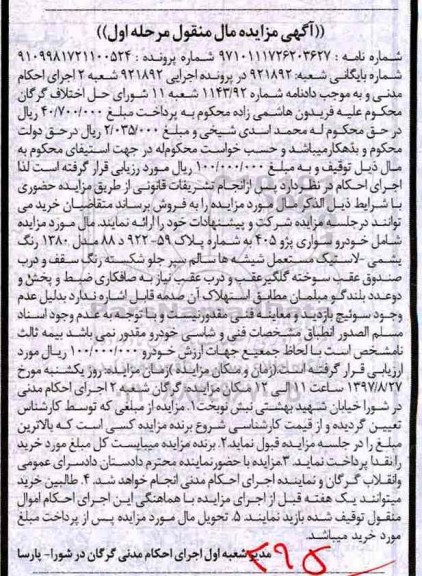 ((آگهی مزایده مال منقول مرحله اول))
شماره نامه : ۹۷۱۰۱۱۱۷۲۶۲۰۳۶۲۷ شماره پرونده : ۹۱۰۹۹۸۱۷۲۱۱۰۰۵۲۴
شماره بایگانی شعبه: ۹۲۱۸۹۲ در پرونده اجرایی ۹۲۱۸۹۲ شعبه ۲ اجرای احکام
مدنی و به موجب دادنامه شماره ۱۱۴۳/۹۲ شعبه ۱۱ شورای حل اختلاف گرگان
محکوم علیه فریدون هاشمی زاده محکوم به پرداخت مبلغ ۴۰/۷۰۰/۰۰۰ ریال
در حق محکوم له محمد اسدی شیخی و مبلغ ۲/۰۳۵/۰۰۰ ریال درحق دولت
محکوم و بدهکارمیباشد و حسب خواست محکوم‌له در جهت استیفای محکوم به
مال ذیل توقیف و به مبلغ ۱۰۰/۰۰۰/۰۰۰ ریال مورد ارزیابی قرار گرفته است لذا
اجرای احکام در نظردارد پس ازانجام تشریفات قانونی از طریق مزایده حضوری
با شرایط ذیل الذکرمال مورد مزایده را به فروش برساند متقاضیان خرید می
توانند درجلسه مزایده شرکت و پیشنهادات خود را ارائه نمایند. مال مورد مزایده
شامل خودرو سواری پژو ۴۰۵ به شماره پلاک ۵۹-۹۲۲ د ۸۸ مدل ۱۳۸۰ رنگ
یشمی -لاستیک مستعمل شیشه ها سالم سپر جلو شکسته رنگ سقف و درب
صندوق عقب سوخته گلگیرعقب و درب عقب نیاز به صافکاری ضبط و پخش و
دوعدد بلندگو مبلمان مطابق استهلاک آن صدمه قابل اشاره ندارد بدلیل عدم
وجود سوئیچ بازدید و معاینه فنی مقدورنیست و با توجه به عدم وجود اسناد
مسلم الصدور انطباق مشخصات فنی و شاسی خودرو مقدور نمی باشد بیمه ثالث
نامشخص است با لحاظ جمیع جهات ارزش خودرو ۱۰۰/۰۰۰/۰۰۰ ریال مورد
ارزیابی قرار گرفته است.(زمان و مکان مزایده )زمان مزایده: روز یکشنبه مورخ
۱۳۹۷/۸/۲۷ ساعت ۱۱الی ۱۲ مکان مزایده: گرگان شعبه ۲ اجرای احکام مدنی
در شورا خیابان شهید بهشتی نبش نوبخت۱. مزایده از مبلغی که توسط کارشناس
تعیین گردیده و از قیمت کارشناسی شروع برنده مزایده کسی است که بالاترین
مبلغ را در جلسه مزایده قبول نماید.۲. برنده مزایده میبایست کل مبلغ مورد خرید
را نقدا پرداخت نماید. ۳.مزایده با حضورنماینده محترم دادستان دادسرای عمومی
وانقلاب گرگان و نماینده اجرای احکام مدنی انجام خواهد شد. ۴. طالبین خرید
میتوانند یک هفته قبل از اجرای مزایده با هماهنگی این اجرای احکام اموال
منقول توقیف شده بازید نمایند. ۵. تحویل مال مورد مزایده پس از پرداخت مبلغ
مورد خرید میباشد.
مدیرشعبه اول اجرای احکام مدنی گرگان در شورا- پارسا